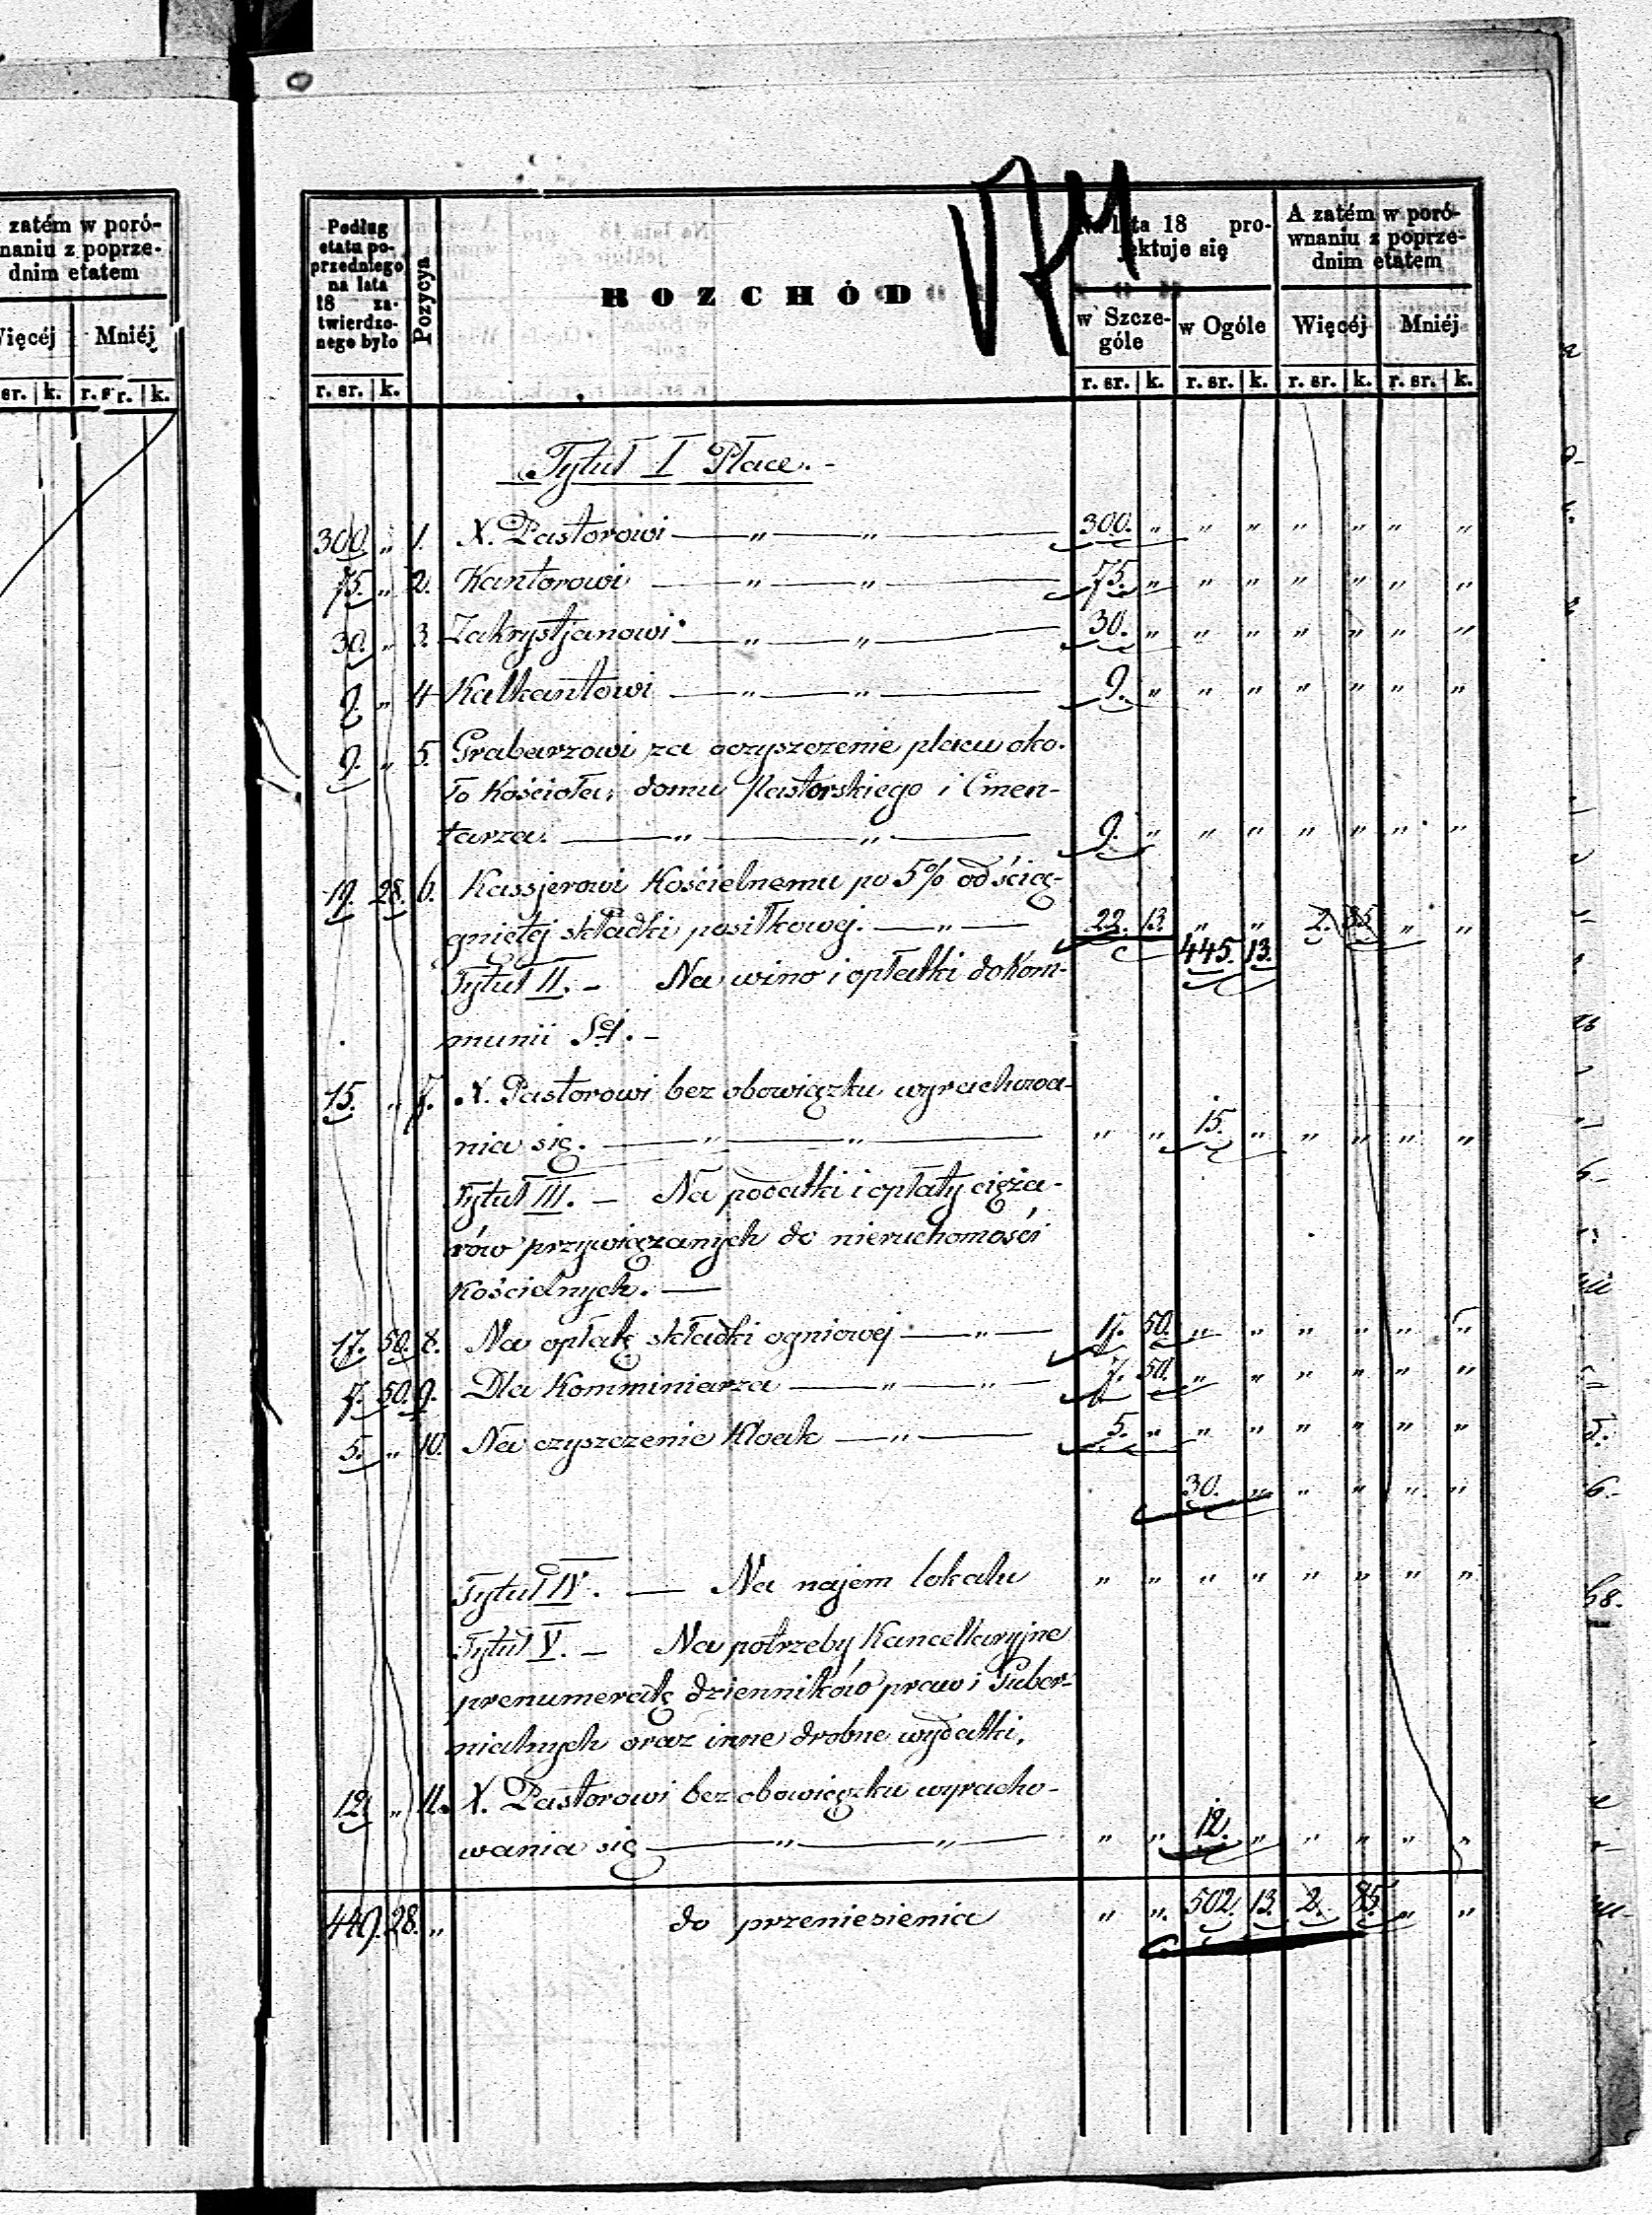 zatém w poró-
naniu z poprze-
dnim etatem
Więcéj Mniéj
sr. k. r. sr. k.
Podług
etatu po-
przedniego
na lata
18 za-
twierdzo-
nego było
Pozycya
ROZCHÓD
Na lata 18 pro-
jektuje się
A zatém w poró-
wnaniu z poprze-
dnim etatem
w Szcze-
góle
w Ogóle
Więcéj
Mniéj
r. sr. k. r. sr. k. r. sr. k. r. sr. k. r. sr. k.
Tytuł I Płace.-
300. " 1. X. Pastorowi — " — " — 300. " " " " " " "
75. " 2. Kantorowi — " — " — 75. " " " " " " "
30. " 3. Zakrystjanowi — " — " — 30. " " " " " " "
9 " 4 Kalkantowi — " — " — 9. " " " " " " "
9. " 5. Grabarzowi za oczyszczenie placu oko-
ło Kościoła, domu Pastorskiego i Cmen-
tarza. — " — " — 9. " " " " " " "
19. 28. 6. Kassjerowi Kościelnemu po 5% od ścią-
gniętej składki posiłkowej. — " — 22. 13. " " 2. 85 " "
445. 13.
Tytuł II. — Na wino i opłatki do Kom-
munii Stej. —
15. " 7. X. Pastorowi bez obowiązku wyrachowa-
nia się. — " — " — " " 15. " " " " "
Tytuł III. — Na podatki i opłaty cięża-
rów przywiązanych do nieruchomości
Kościelnych. —
17. 50. 8. Na opłatę składki ogniowej — " — 17. 50. " " " " " "
7. 50. 9. Dla Komminiarza — " — " — 7. 50. " " " " " "
5. " 10. Na czyszczenie Kloak — " — 5. " " " " " " "
30. " " " " "
Tytuł IV. — Na najem lokalu " " " " " " " "
Tytuł V. — Na potrzeby Kancellaryjne
prenumeratę dzienników praw i Guber-
nialnych oraz inne drobne wydatki.
12. " 11. X. Pastorowi bez obowiązku wyracho-
wania się — " — " — " " 12. " " " " "
449. 28. " do przeniesienia " " 502. 13. 2. 85. " "